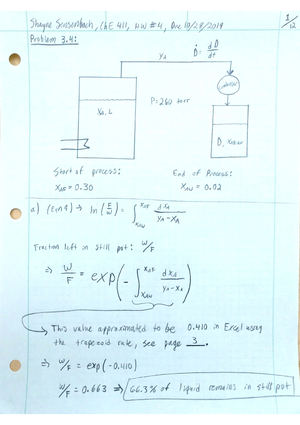 Shayne Sensenbach, ChE 411, HW #4, Due 10/29/2019
1/12
Problem 3.4:
yA
Ḋ = dD/dt
condenser
xA, L
P = 260 torr
D, xD,avg
Start of process:
End of Process:
xAF = 0.30
xAW = 0.02
a) (Eqn 4) → ln(F/W) = ∫xAW^xAF dxA/(yA - xA)
Fraction left in still pot: W/F
⇒ W/F = exp(-∫xAW^xAF dxA/(yA - xA))
This value approximated to be 0.410 in Excel using
the trapezoid rule, see page 3.
⇒ W/F = exp(-0.410)
W/F = 0.663 ⇒ 66.3% of liquid remains in still pot